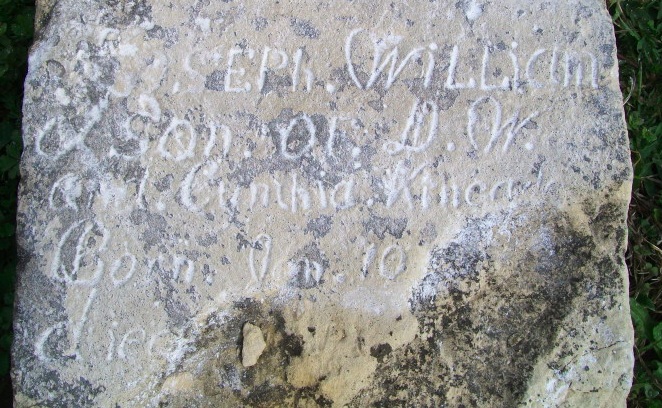 JOSEPh. William
A Son. of. D. W.
and. Cynthia. Kincade
Born. Jan. 10
died